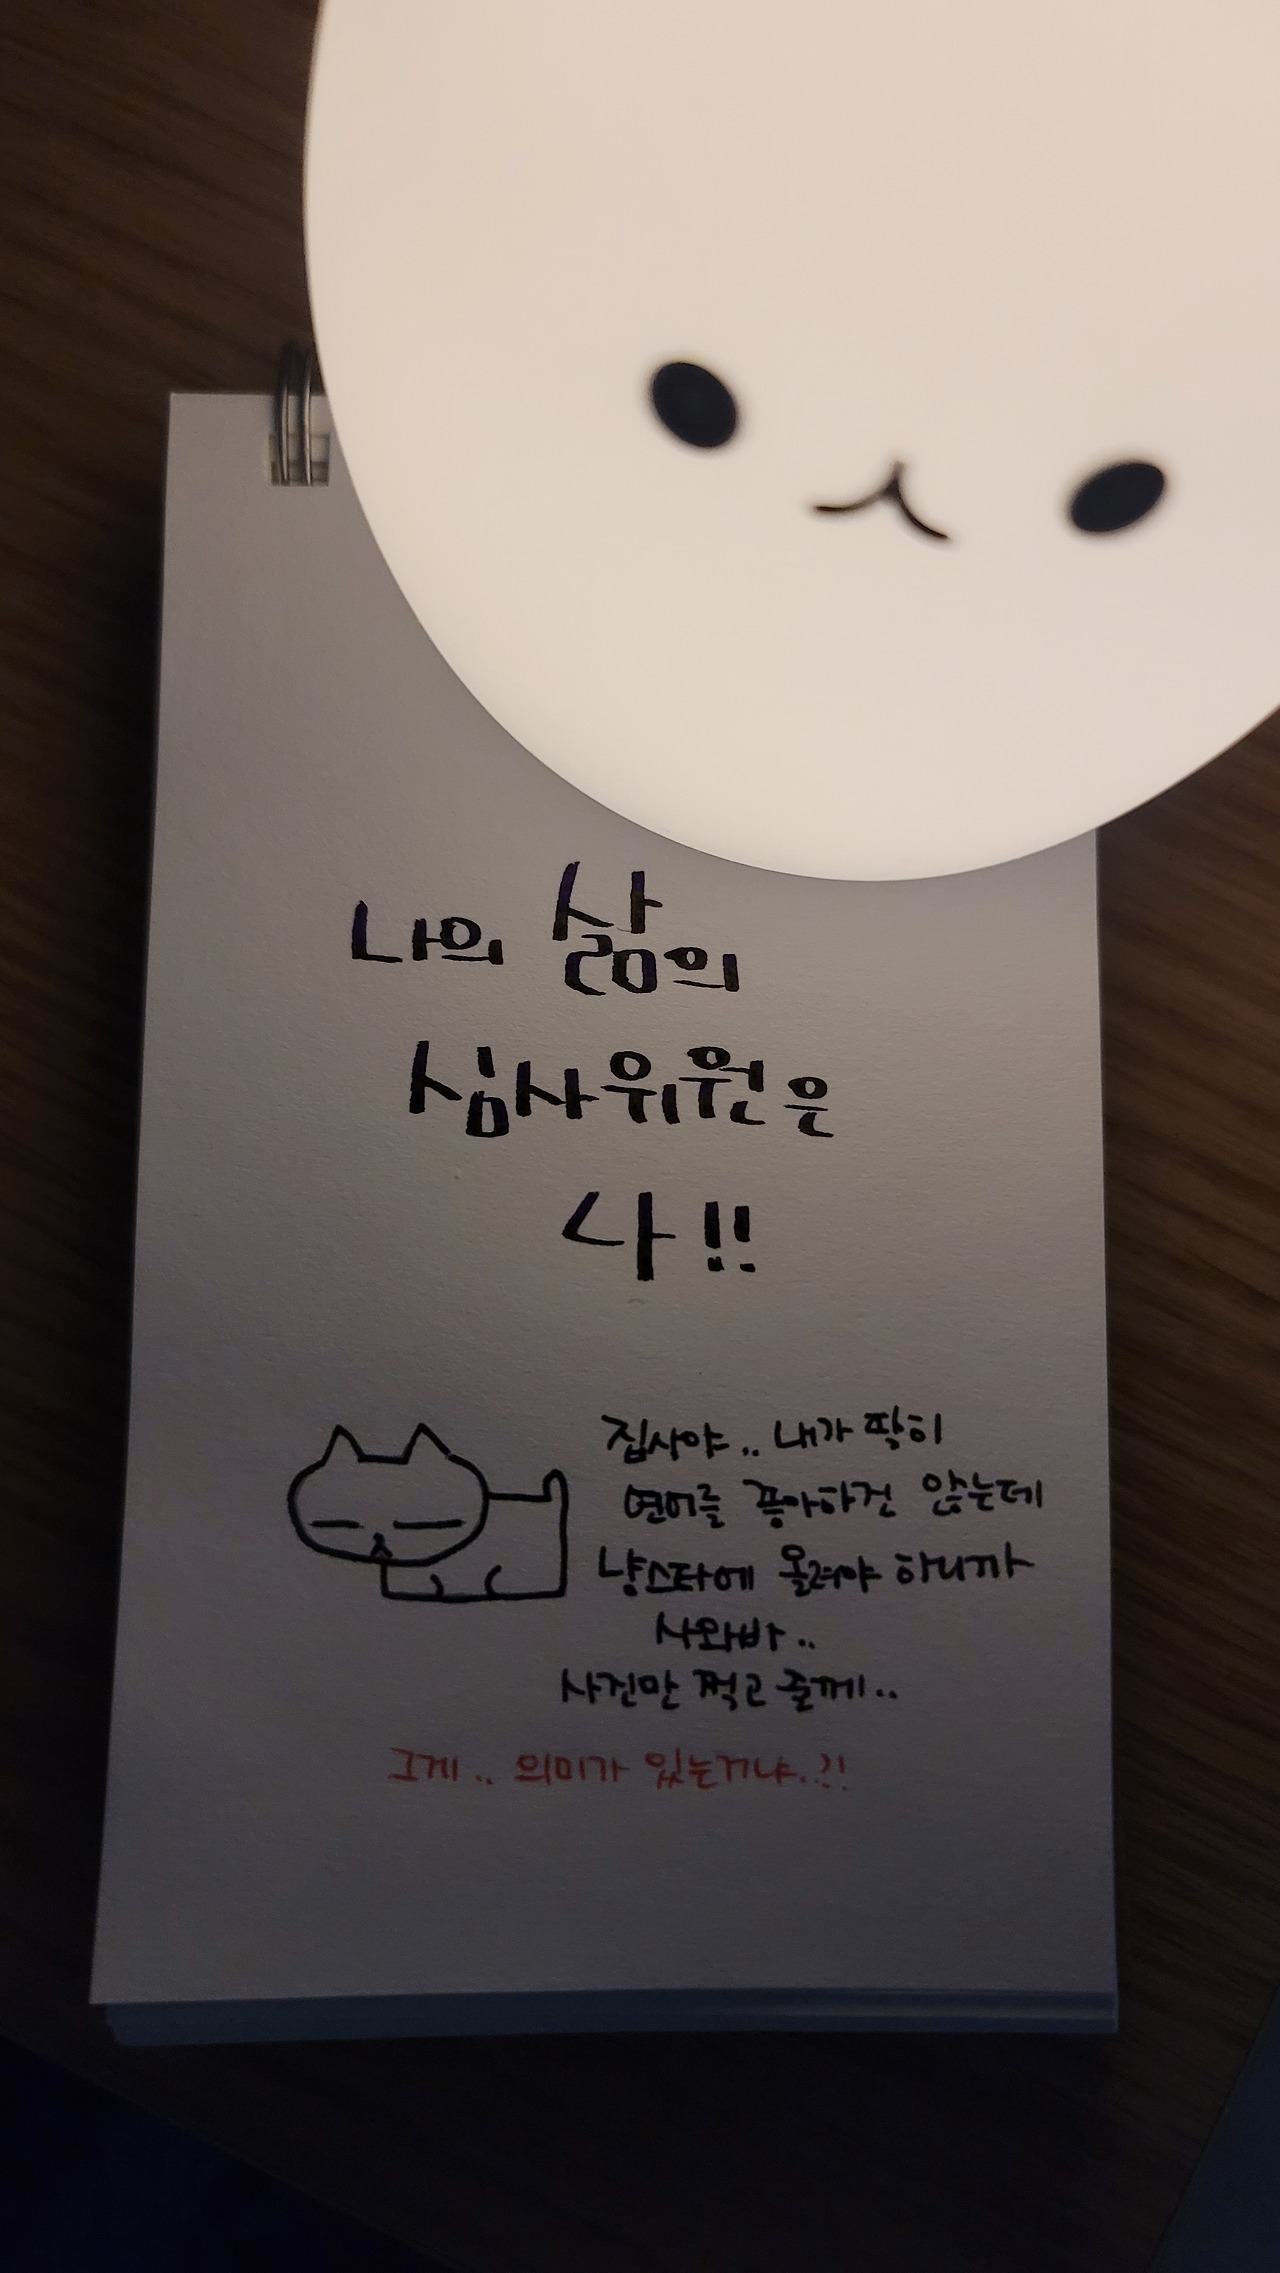 나의 삶의
심사위원은
나!!
집사야.. 내가 딱히
연어를 좋아하건 않는데
냥스타에 올려야 하니까
사와바..
사진만 찍고 줄께..
그게.. 의미가 있는거냐..?!